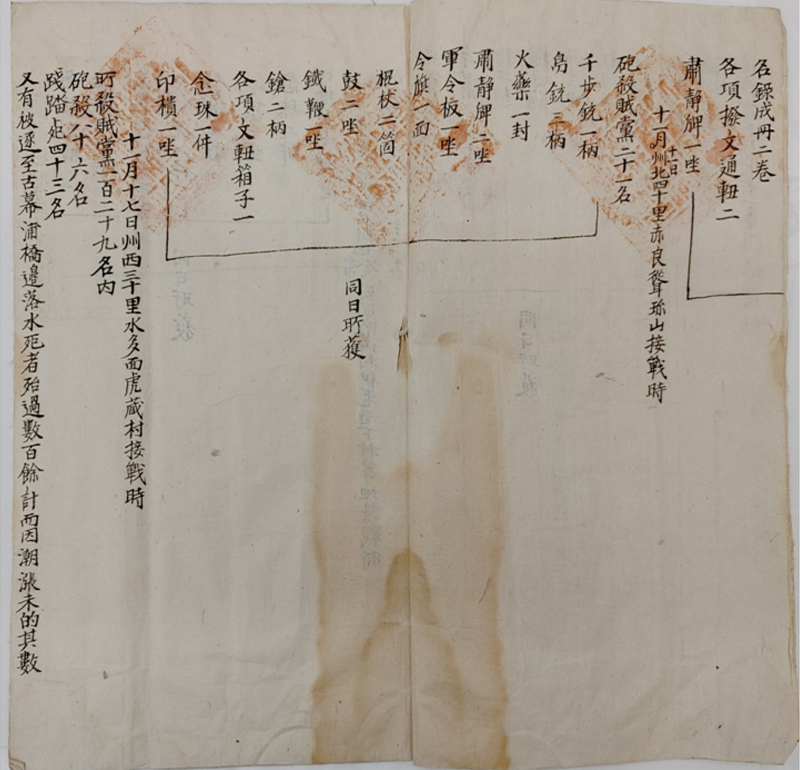 名錄成冊二卷
各項撥文通軸二
肅靜牌一坐
十一月十一日州北四十里赤良聳珎山接戰時
砲殺賊黨二十一名
千步銃一柄
鳥銃三柄
火藥一封
肅靜牌二坐
軍令板一坐
令旗一面
棍杖二箇
鼓二坐
同日所獲
鐵鞭一坐
鎗二柄
各項文軸箱子一
念珠一件
印樻一坐
十一月十七日州西三十里水多面虎藏村接戰時
所殺賊黨一百二十九名內
砲殺八十六名
踐踏死四十三名
又有被逐至古幕浦橋邊落水死者殆過數百餘計而因潮漲未的其數